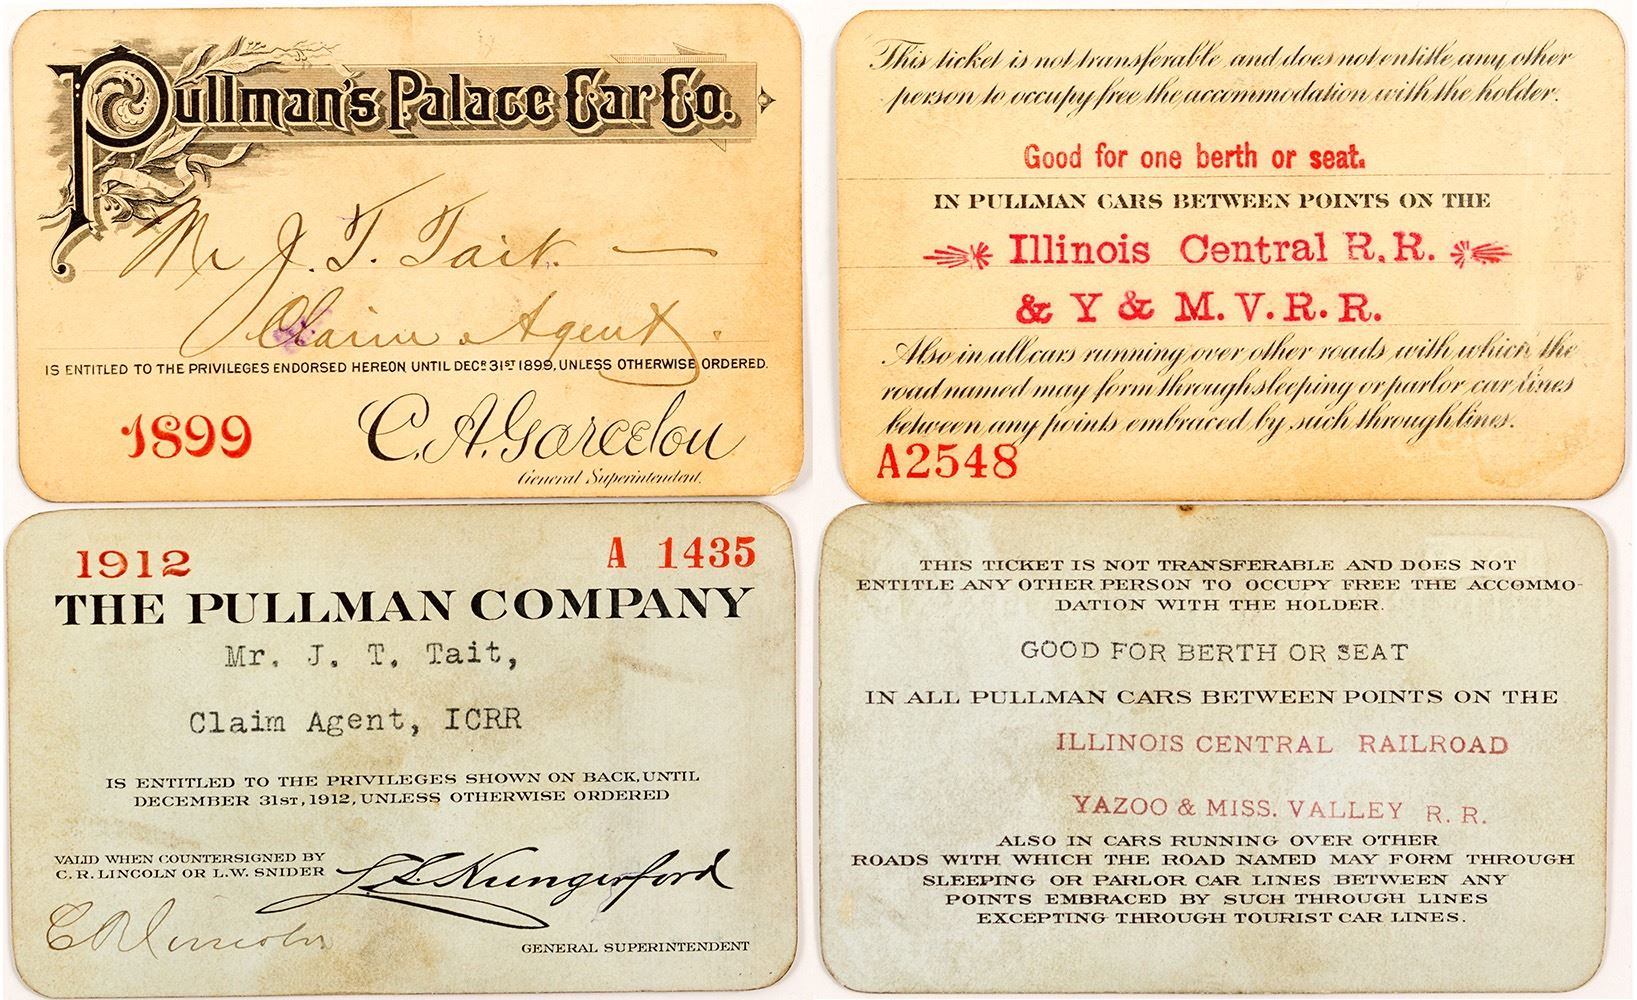 Pullman's Palace Car Co.
Mr J. T. Tait.
Claim Agent.
IS ENTITLED TO THE PRIVILEGES ENDORSED HEREON UNTIL DECR 31ST 1899, UNLESS OTHERWISE ORDERED.
1899
C. A. Garcelon
General Superintendent.
This ticket is not transferable and does not entitle any other
person to occupy free the accommodation with the holder.
Good for one berth or seat.
IN PULLMAN CARS BETWEEN POINTS ON THE
Illinois Central R.R.
& Y & M. V. R. R.
Also in all cars running over other roads with which the
road named may form through sleeping or parlor car lines
between any points embraced by such through lines.
A2548
1912
A 1435
THE PULLMAN COMPANY
Mr. J. T. Tait,
Claim Agent, ICRR
IS ENTITLED TO THE PRIVILEGES SHOWN ON BACK, UNTIL
DECEMBER 31ST, 1912, UNLESS OTHERWISE ORDERED
VALID WHEN COUNTERSIGNED BY
C. R. LINCOLN OR L. W. SNIDER
Hungerford
C R Lincoln
GENERAL SUPERINTENDENT
THIS TICKET IS NOT TRANSFERABLE AND DOES NOT
ENTITLE ANY OTHER PERSON TO OCCUPY FREE THE ACCOMMO-
DATION WITH THE HOLDER.
GOOD FOR BERTH OR SEAT
IN ALL PULLMAN CARS BETWEEN POINTS ON THE
ILLINOIS CENTRAL RAILROAD
YAZOO & MISS. VALLEY R. R.
ALSO IN CARS RUNNING OVER OTHER
ROADS WITH WHICH THE ROAD NAMED MAY FORM THROUGH
SLEEPING OR PARLOR CAR LINES BETWEEN ANY
POINTS EMBRACED BY SUCH THROUGH LINES
EXCEPTING THROUGH TOURIST CAR LINES.